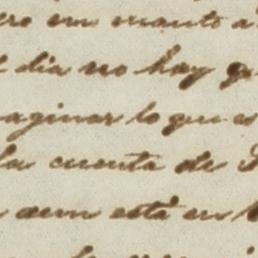 ero em cuanto a
dia no hay qu
aginar lo que es
la cuenta de
dem está en